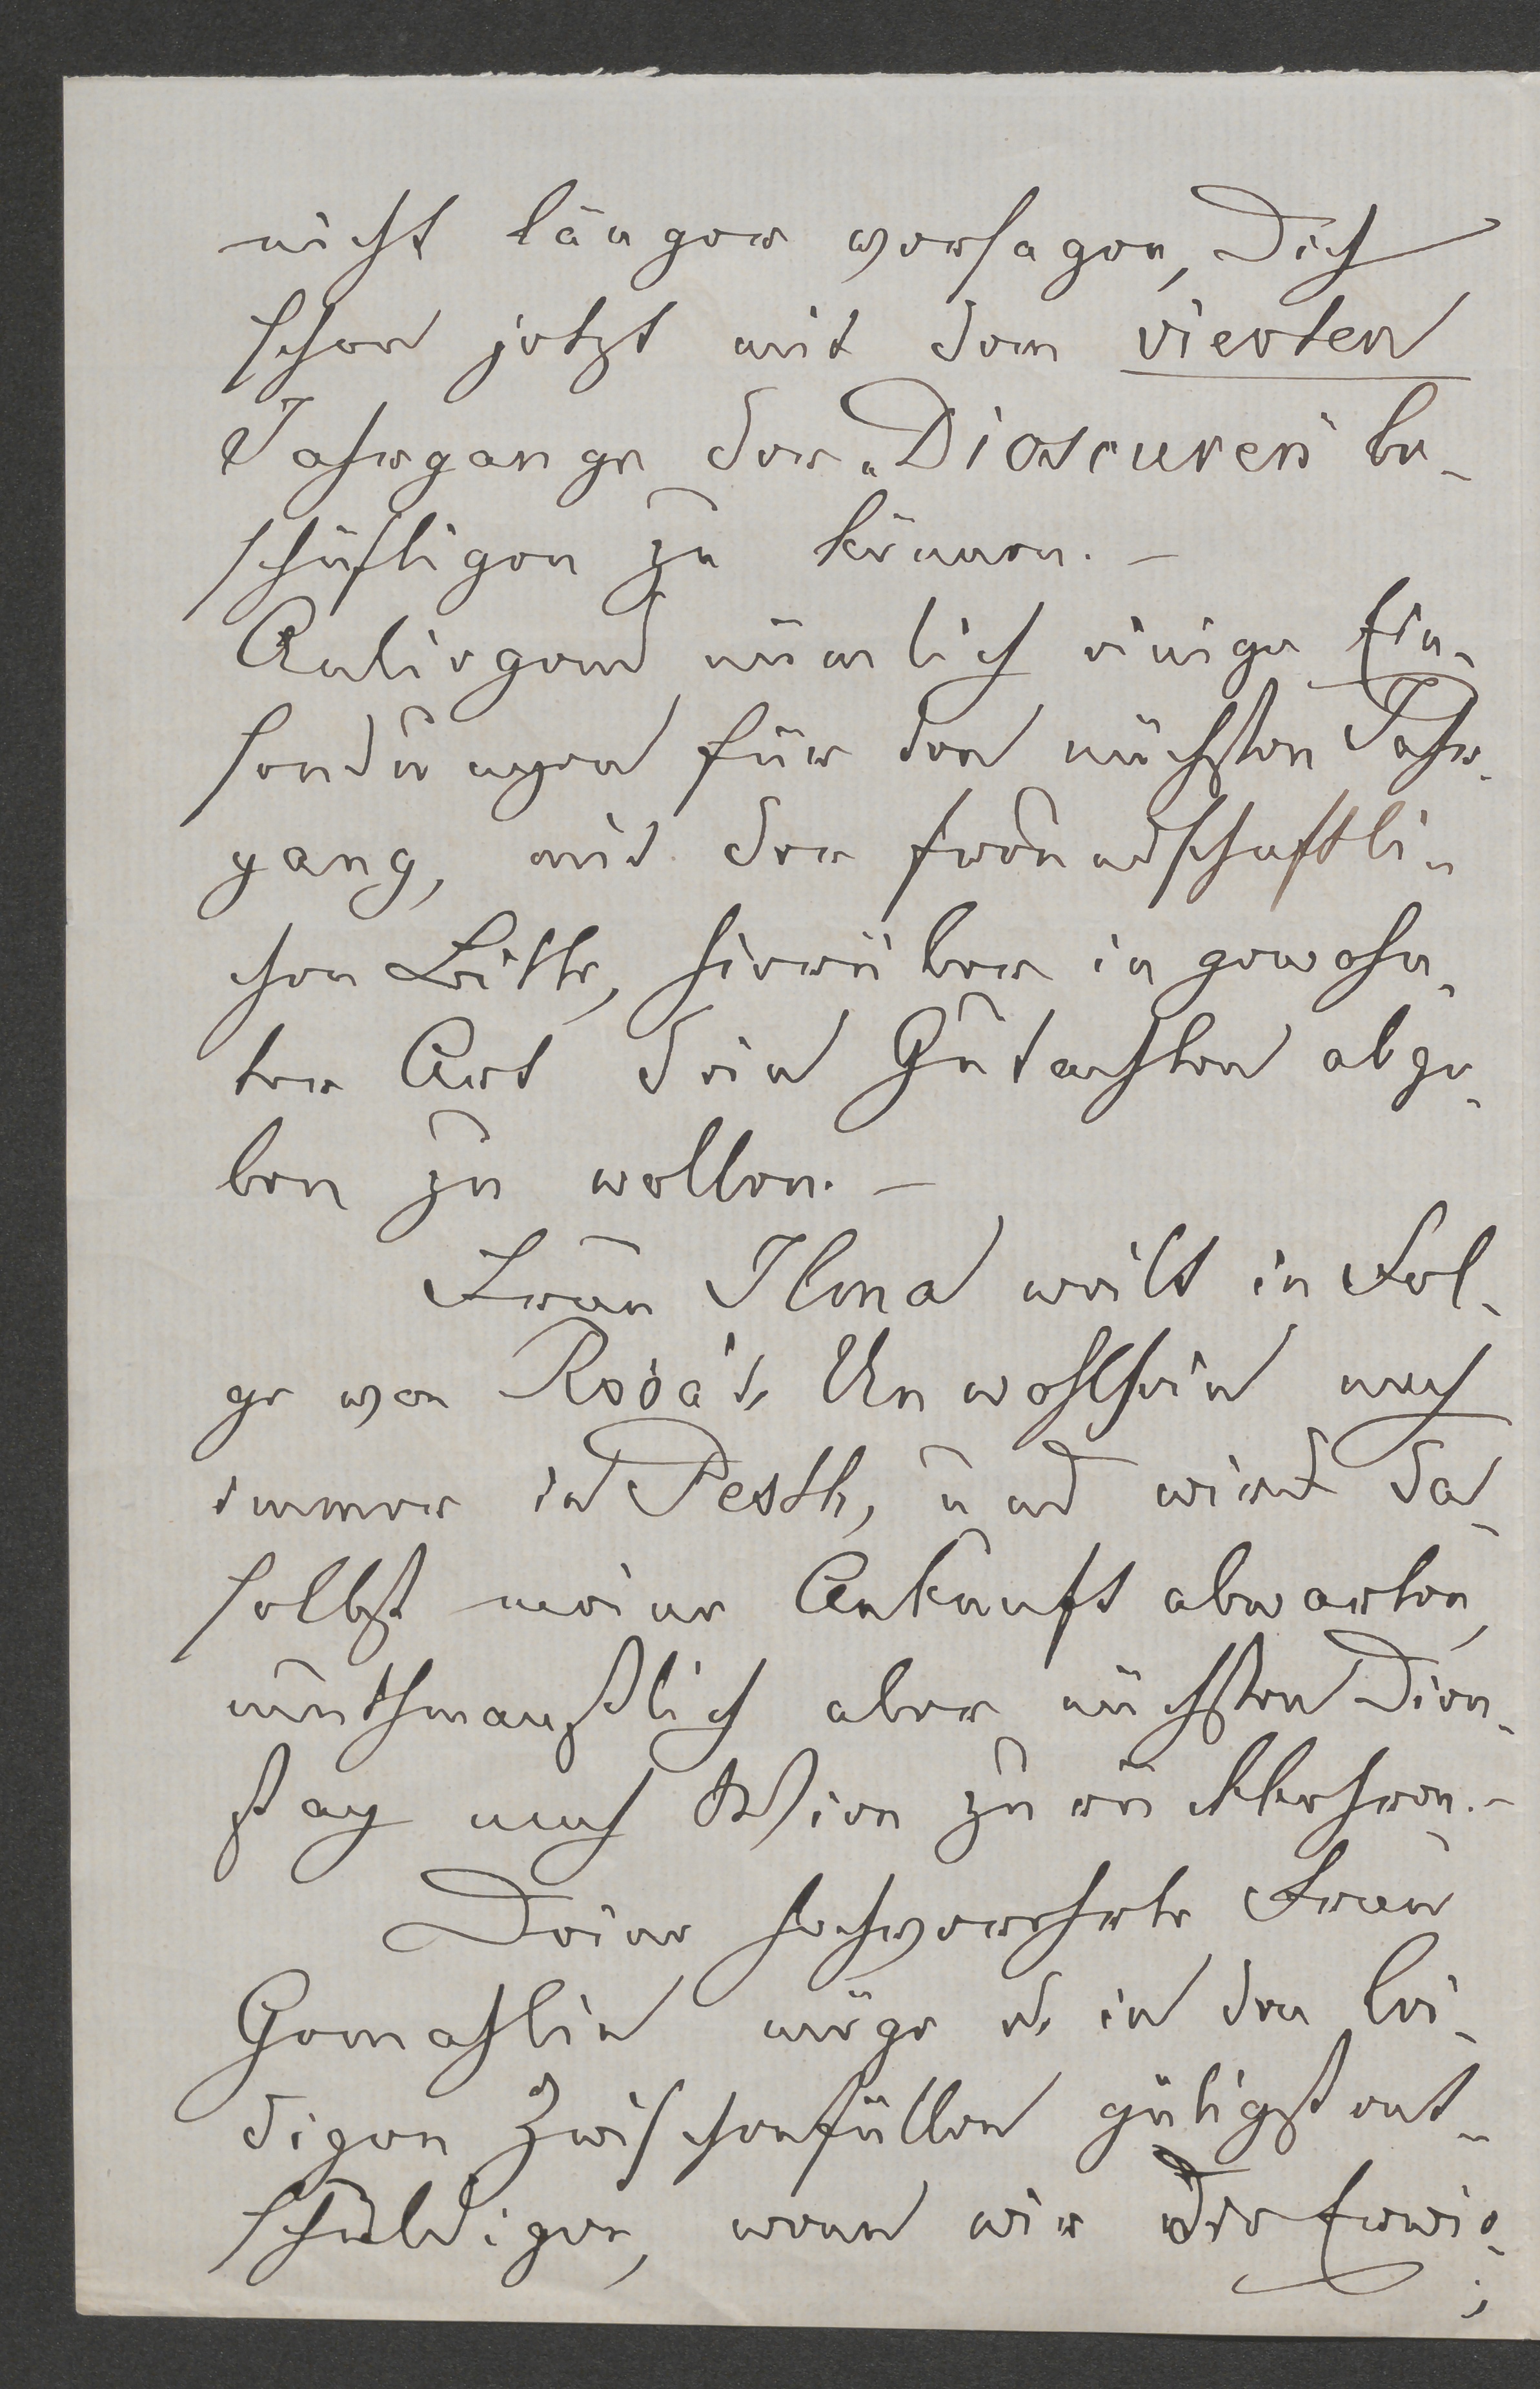 nicht länger versagen, Dich
schon jetzt mit dem vierten
Jahrgange der „Dioscuren" be-
schäftigen zu können. –
Anliegend nämlich einige Ein-
sendungen für den nächsten Jahr-
gang, mit der freundschaftli-
chen Bitte, hierüber in gewohn-
ter Art Dein Gutachten abge-
ben zu wollen. –
Frau Ilona weilt in Fol-
ge von Rosa's Unwohlsein noch
immer in Pesth, und wird da-
selbst meine Ankunft abwarten,
muthmaußlich aber nächsten Dien-
stag nach Wien zurückkehren. –
Deine hochverehrte Frau
Gemahlin möge es in den lei-
digen Zwischenfällen gütigst ent-
schuldigen, wenn wir die Erwie-